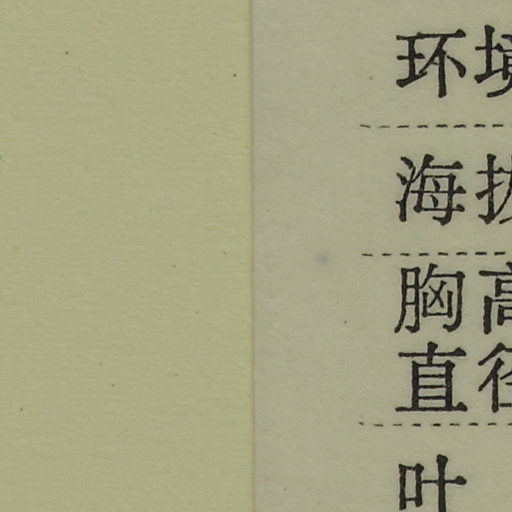 环境
海拔
胸高
直径
叶